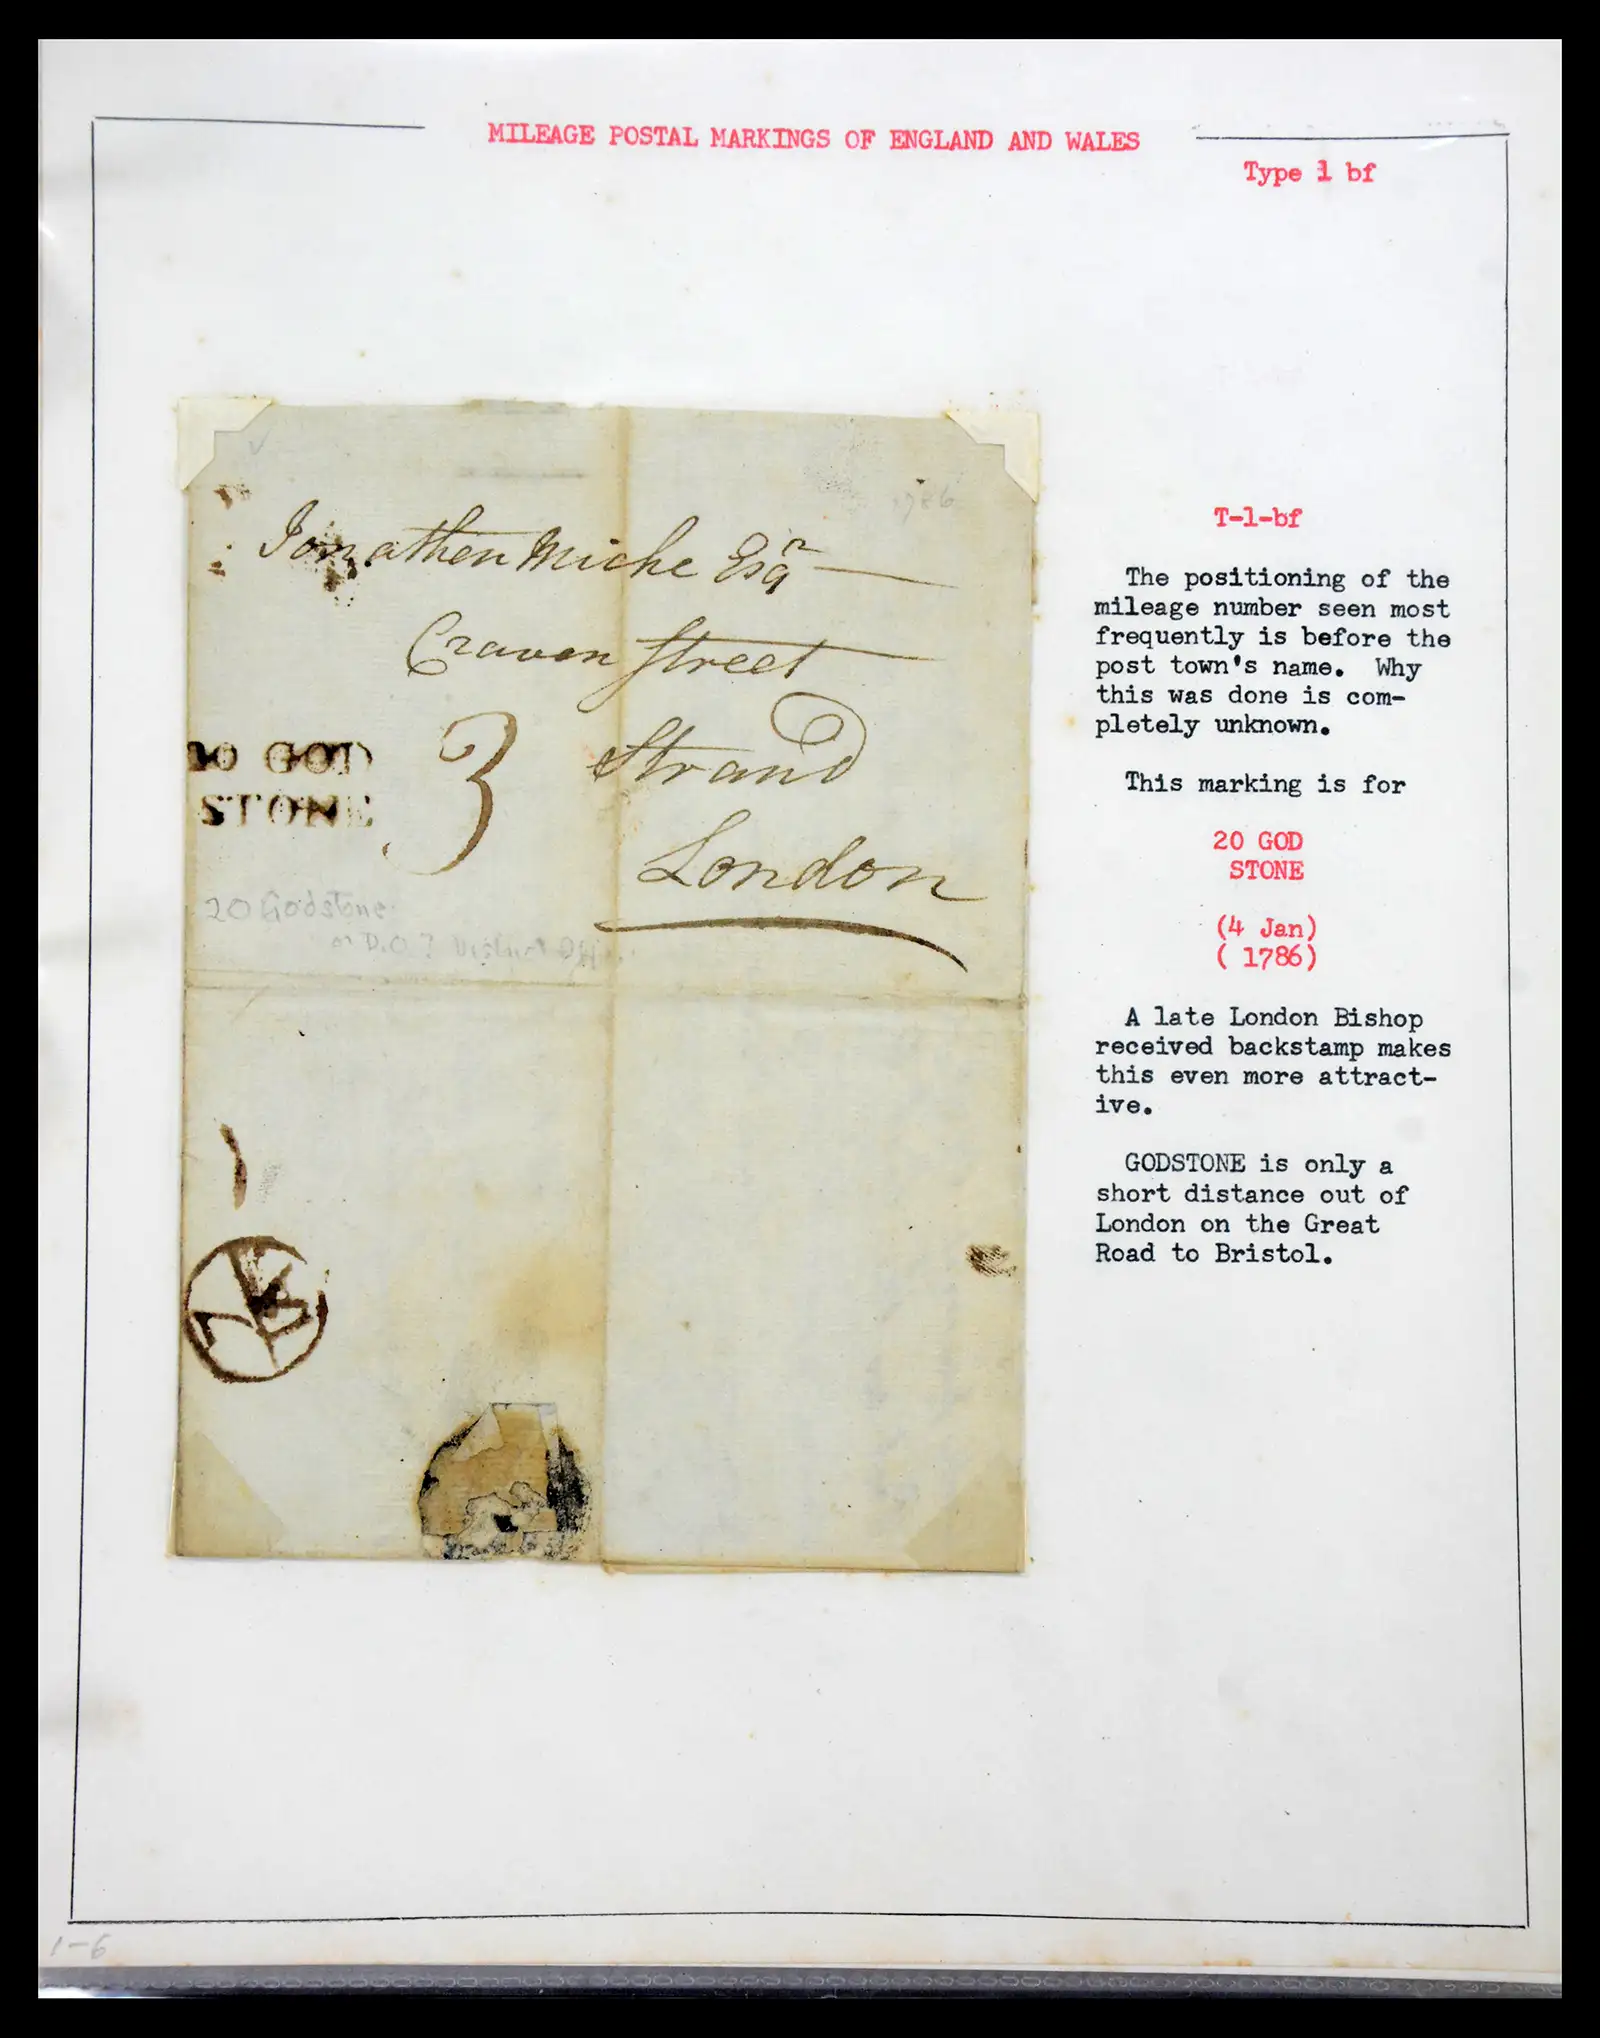 MILEAGE POSTAL MARKINGS OF ENGLAND AND WALES
Type 1 bf
1786
Jonathen Miche Esqr
Craven Street
Strand
London
3
20 GOD
STONE
20 Godstone
or D.O?
T-1-bf
The positioning of the
mileage number seen most
frequently is before the
post town's name. Why
this was done is com-
pletely unknown.
This marking is for
20 GOD
STONE
(4 Jan)
( 1786)
A late London Bishop
received backstamp makes
this even more attract-
ive.
GODSTONE is only a
short distance out of
London on the Great
Road to Bristol.
1-6